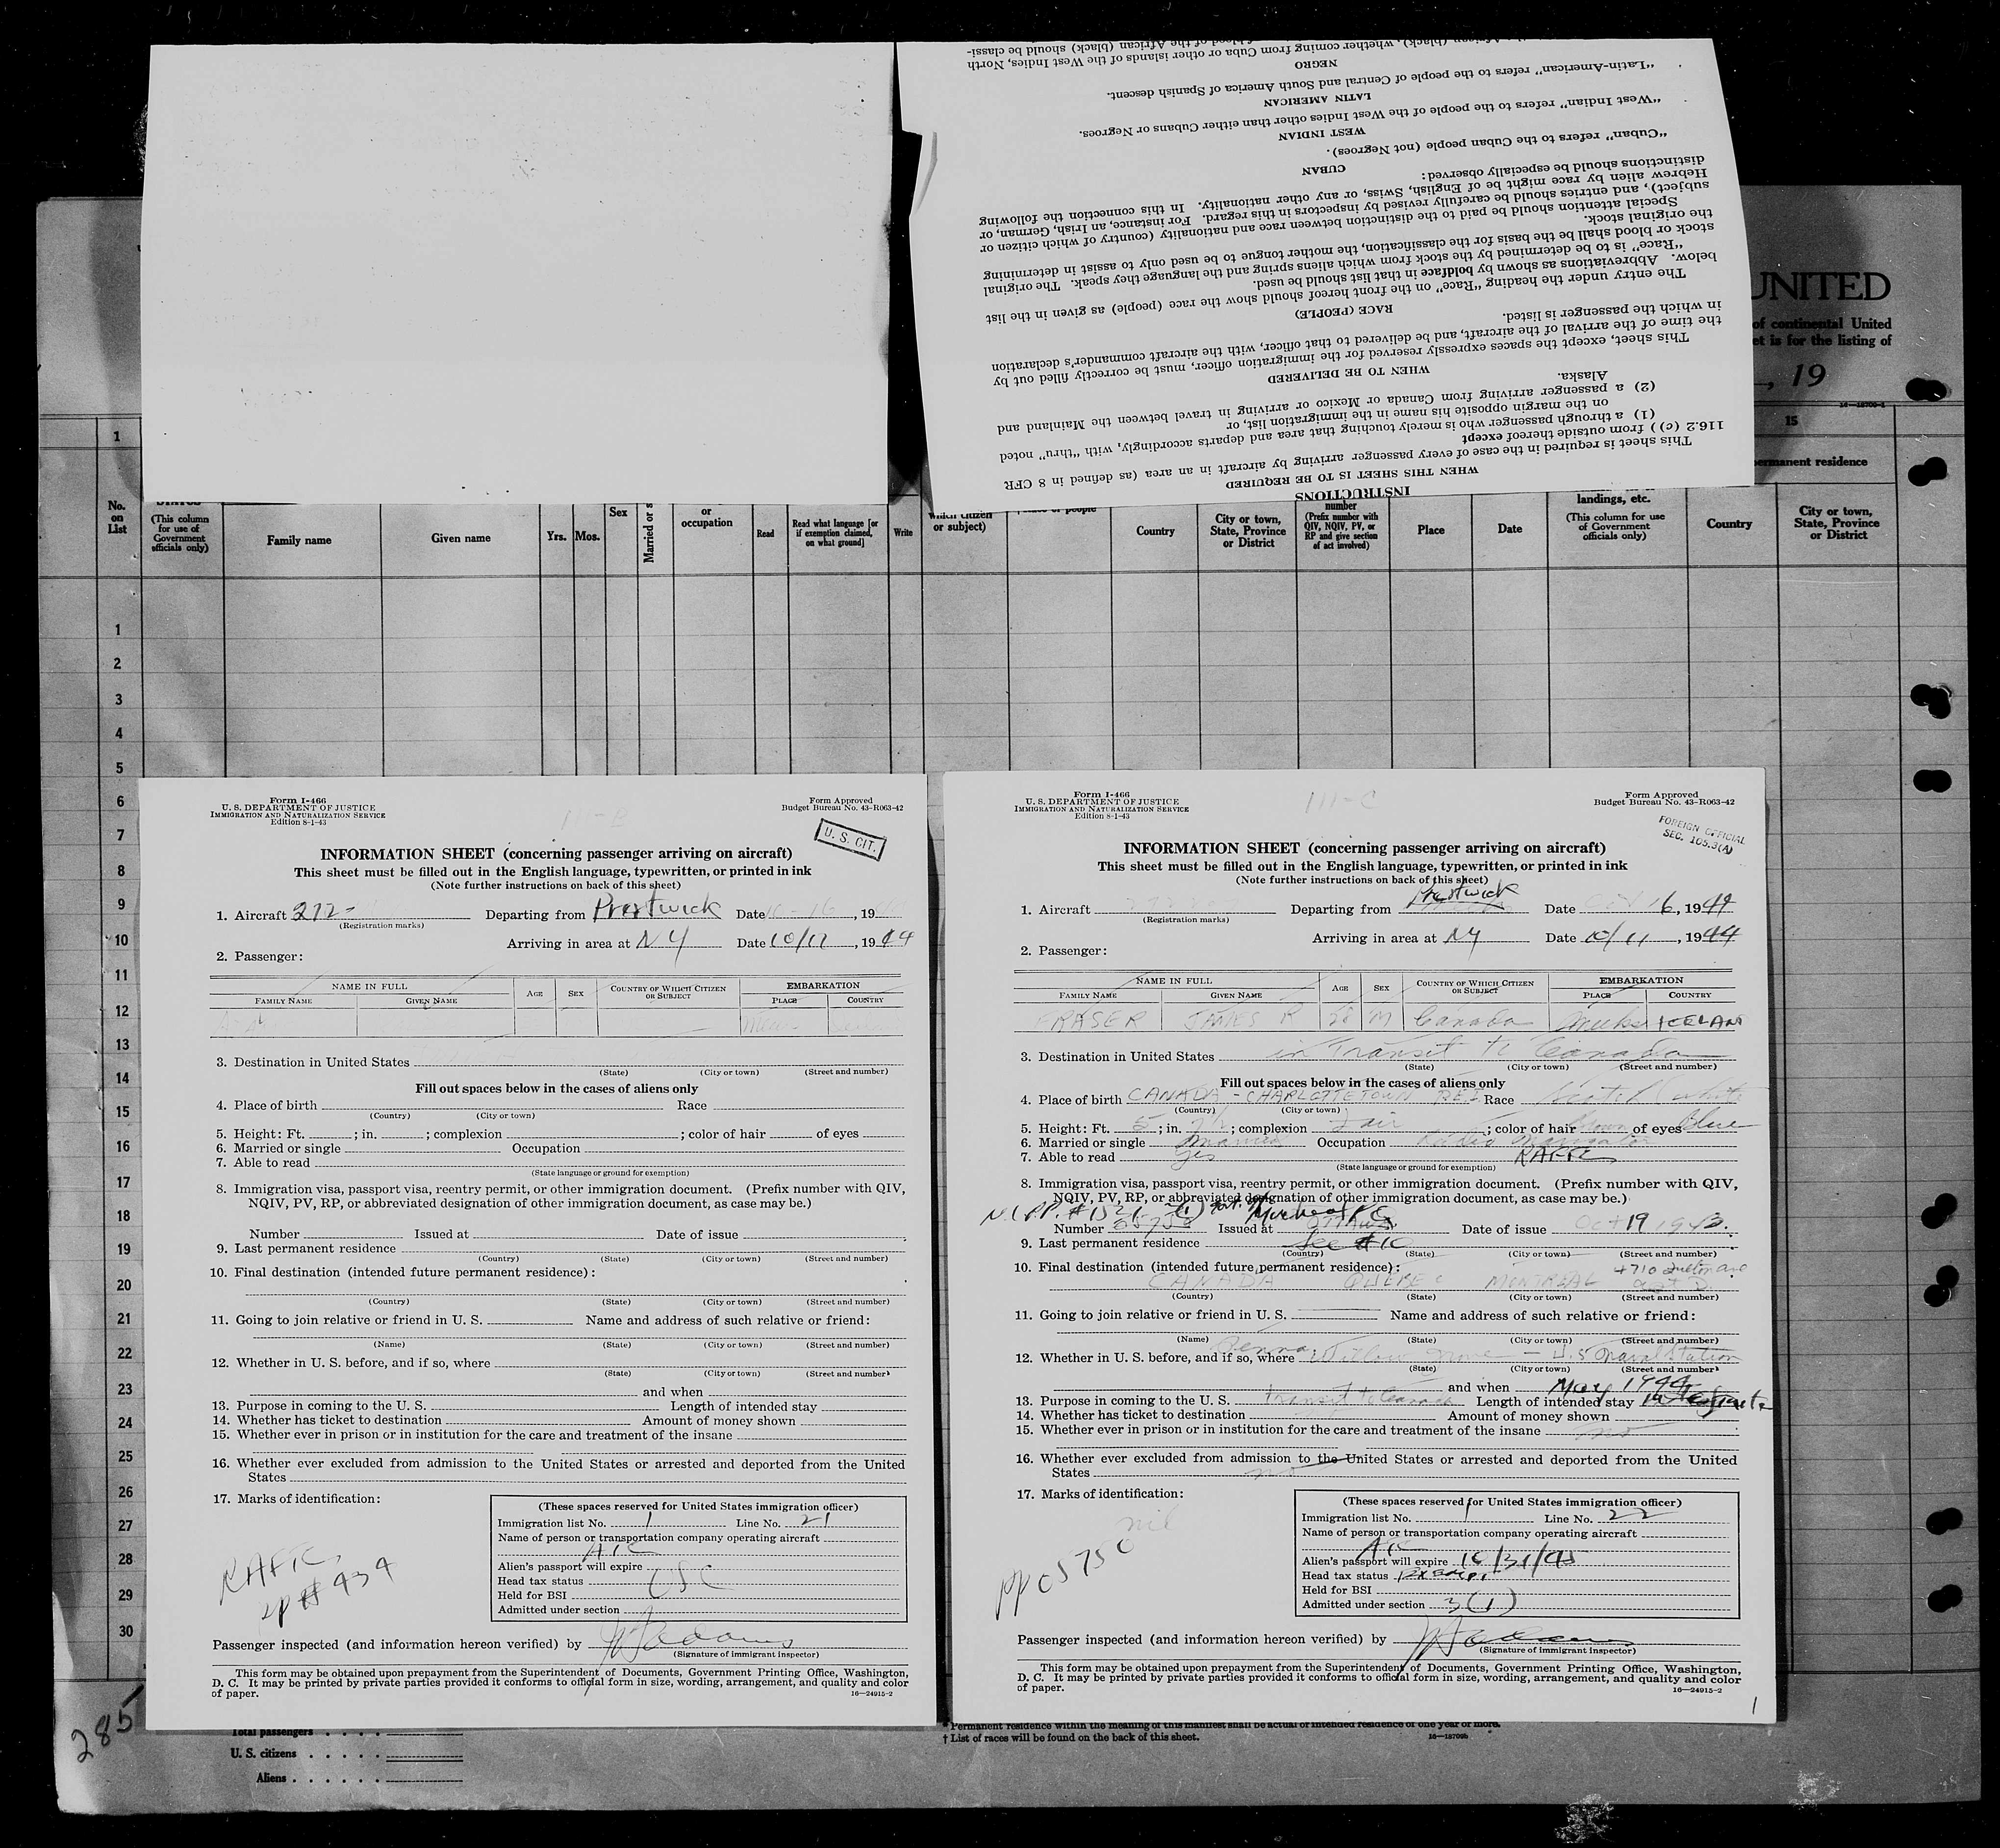 "Latin-American" refers to the people of Central and South America of Spanish descent.
NEGRO
African (black), whether coming from Cuba or other islands of the West Indies, North
blood of the African (black) should be classi-
INSTRUCTIONS
WHEN THIS SHEET IS TO BE REQUIRED
This sheet is required in the case of every passenger arriving by aircraft in an area (as defined in 8 CFR
116.2 (c)) from outside thereof except
(1) a through passenger who is merely touching that area and departs accordingly, with "thru" noted
on the margin opposite his name in the immigration list, or
(2) a passenger arriving from Canada or Mexico or arriving in travel between the Mainland and
Alaska.
WHEN TO BE DELIVERED
This sheet, except the spaces expressly reserved for the immigration officer, must be correctly filled out by
the time of the arrival of the aircraft, and be delivered to that officer, with the aircraft commander's declaration
in which the passenger is listed.
RACE (PEOPLE)
The entry under the heading "Race" on the front hereof should show the race (people) as given in the list
below. Abbreviations as shown by boldface in that list should be used.
"Race" is to be determined by the stock from which aliens spring and the language they speak. The original
stock or blood shall be the basis for the classification, the mother tongue to be used only to assist in determining
the original stock.
Special attention should be paid to the distinction between race and nationality (country of which citizen or
subject), and entries should be carefully revised by inspectors in this regard. For instance, an Irish, German, or
Hebrew alien by race might be of English, Swiss, or any other nationality. In this connection the following
distinctions should be especially observed:
CUBAN
"Cuban" refers to the Cuban people (not Negroes).
WEST INDIAN
"West Indian" refers to the people of the West Indies other than either Cubans or Negroes.
LATIN AMERICAN
UNITED
of continental United
et is for the listing of
, 19
1 15
permanent residence
No. on List
(This column for use of Government officials only)
Family name
Given name
Yrs.
Mos.
Sex
Married or s
or occupation
Read
Read what language [or if exemption claimed, on what ground]
Write
which citizen or subject)
Country
City or town, State, Province or District
number
(Prefix number with QIV, NQIV, PV, or RP and give section of act involved)
Place
Date
landings, etc.
(This column for use of Government officials only)
Country
City or town, State, Province or District
1
2
3
4
5
6
7
8
9
10
11
12
13
14
15
16
17
18
19
20
21
22
23
24
25
26
27
28
29
30
Form I-466
U. S. DEPARTMENT OF JUSTICE
IMMIGRATION AND NATURALIZATION SERVICE
Edition 8-1-43
III-B
Form Approved
Budget Bureau No. 43-R063-42
U. S. CIT.
INFORMATION SHEET (concerning passenger arriving on aircraft)
This sheet must be filled out in the English language, typewritten, or printed in ink
(Note further instructions on back of this sheet)
1. Aircraft 272- Departing from Prestwick Date 10-16, 19
(Registration marks)
Arriving in area at NY Date 10/17, 1944
2. Passenger:
NAME IN FULL
FAMILY NAME
GIVEN NAME
AGE
SEX
COUNTRY OF WHICH CITIZEN OR SUBJECT
EMBARKATION
PLACE
COUNTRY
3. Destination in United States
(State) (City or town) (Street and number)
Fill out spaces below in the cases of aliens only
4. Place of birth Race
(Country) (City or town)
5. Height: Ft. ; in. ; complexion ; color of hair of eyes
6. Married or single Occupation
7. Able to read
(State language or ground for exemption)
8. Immigration visa, passport visa, reentry permit, or other immigration document. (Prefix number with QIV,
NQIV, PV, RP, or abbreviated designation of other immigration document, as case may be.)
Number Issued at Date of issue
9. Last permanent residence
(Country) (State) (City or town) (Street and number)
10. Final destination (intended future permanent residence):
(Country) (State) (City or town) (Street and number)
11. Going to join relative or friend in U. S. Name and address of such relative or friend:
(Name) (State) (City or town) (Street and number)
12. Whether in U. S. before, and if so, where
(State) (City or town) (Street and number)
and when
13. Purpose in coming to the U. S. Length of intended stay
14. Whether has ticket to destination Amount of money shown
15. Whether ever in prison or in institution for the care and treatment of the insane
16. Whether ever excluded from admission to the United States or arrested and deported from the United
States
17. Marks of identification:
RAFTC
pp # 434
(These spaces reserved for United States immigration officer)
Immigration list No. 1 Line No. 21
Name of person or transportation company operating aircraft
ATC
Alien's passport will expire
Head tax status USC
Held for BSI
Admitted under section
Passenger inspected (and information hereon verified) by Adams
(Signature of immigrant inspector)
This form may be obtained upon prepayment from the Superintendent of Documents, Government Printing Office, Washington,
D. C. It may be printed by private parties provided it conforms to official form in size, wording, arrangement, and quality and color
of paper.
16—24915-2
Form I-466
U. S. DEPARTMENT OF JUSTICE
IMMIGRATION AND NATURALIZATION SERVICE
Edition 8-1-43
III-C
Form Approved
Budget Bureau No. 43-R063-42
FOREIGN OFFICIAL
SEC. 105.3(A)
INFORMATION SHEET (concerning passenger arriving on aircraft)
This sheet must be filled out in the English language, typewritten, or printed in ink
(Note further instructions on back of this sheet)
1. Aircraft Departing from Prestwick Date Oct 16, 1944
(Registration marks)
Arriving in area at NY Date 10/17, 1944
2. Passenger:
NAME IN FULL
FAMILY NAME
GIVEN NAME
AGE
SEX
COUNTRY OF WHICH CITIZEN OR SUBJECT
EMBARKATION
PLACE
COUNTRY
FRASER JAMES R 28 M Canada Meeks ICELAND
3. Destination in United States in Transit to Canada
(State) (City or town) (Street and number)
Fill out spaces below in the cases of aliens only
4. Place of birth CANADA - CHARLOTTETOWN P.E.I Race Scotch (white
(Country) (City or town)
5. Height: Ft. 5; in. 7½; complexion Fair; color of hair Brown of eyes Blue
6. Married or single married Occupation Radio Navigator
7. Able to read yes RAFTC
(State language or ground for exemption)
8. Immigration visa, passport visa, reentry permit, or other immigration document. (Prefix number with QIV,
NQIV, PV, RP, or abbreviated designation of other immigration document, as case may be.)
Number 05750 Issued at OTTAWA Date of issue Oct 19 1943.
9. Last permanent residence See #10
(Country) (State) (City or town) (Street and number)
10. Final destination (intended future permanent residence):
CANADA QUEBEC MONTREAL
(Country) (State) (City or town) (Street and number)
11. Going to join relative or friend in U. S. Name and address of such relative or friend:
(Name) (State) (City or town) (Street and number)
12. Whether in U. S. before, and if so, where Penna. Willow Grove - U.S Naval Station
(State) (City or town) (Street and number)
and when May 1944
13. Purpose in coming to the U. S. transit to Canada Length of intended stay
14. Whether has ticket to destination Amount of money shown
15. Whether ever in prison or in institution for the care and treatment of the insane no
16. Whether ever excluded from admission to the United States or arrested and deported from the United
States no
17. Marks of identification:
nil
pp 05750
(These spaces reserved for United States immigration officer)
Immigration list No. 1 Line No. 22
Name of person or transportation company operating aircraft
ATC
Alien's passport will expire 10/31/45
Head tax status Exempt
Held for BSI
Admitted under section 3(1)
Passenger inspected (and information hereon verified) by Adams
(Signature of immigrant inspector)
This form may be obtained upon prepayment from the Superintendent of Documents, Government Printing Office, Washington,
D. C. It may be printed by private parties provided it conforms to official form in size, wording, arrangement, and quality and color
of paper.
16—24915-2
1
285
Total passengers
U. S. citizens
Aliens
* Permanent residence within the meaning of this manifest shall be actual or intended residence of one year or more.
† List of races will be found on the back of this sheet.